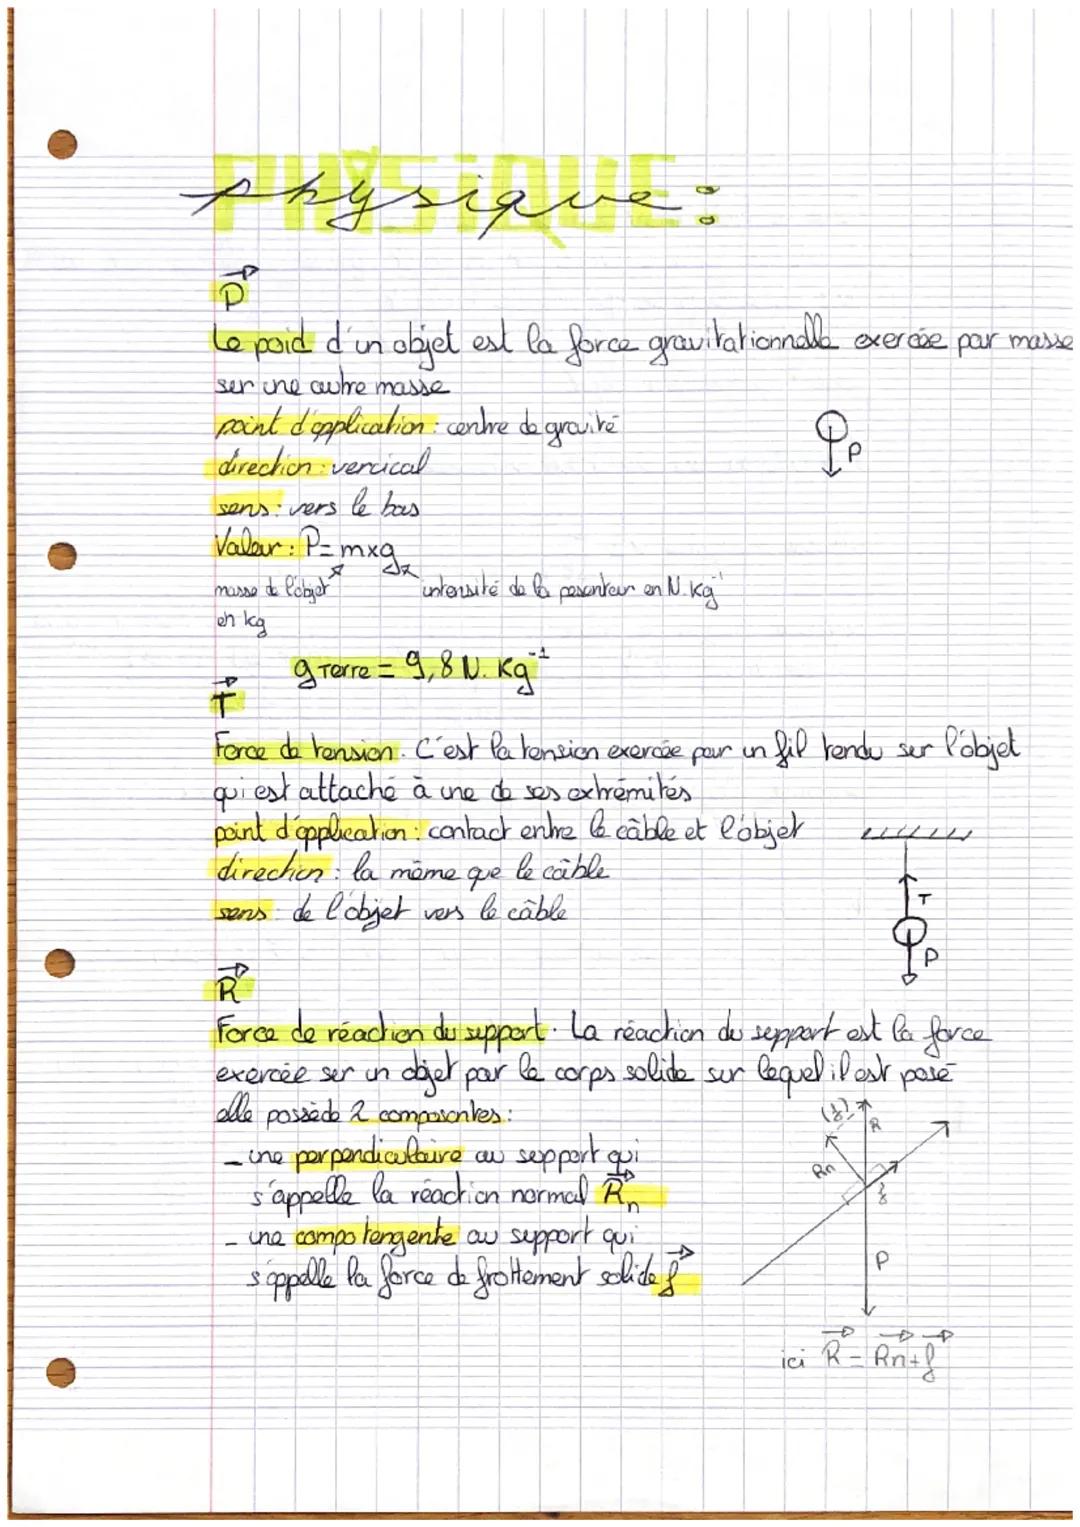 PHYSIQUE
physique:
P
Le poid d'un objet est la force gravitationnelle exercée par masse
sur une autre masse
point d'application : centre de gravité
P
direction : vercical
sens : vers le bas
Valeur : P = m×g
masse de l'objet intensité de la pesenteur en N.kg⁻¹
en kg
g Terre = 9,8 N. Kg⁻¹
T
Force de tension. C'est la tension exercée par un fil tendu sur l'objet
qui est attaché à une de ses extrémités
point d'application : contact entre le câble et l'objet
direction : la même que le câble
T
sens : de l'objet vers le câble
P
R
Force de réaction du support. La réaction du support est la force
exercée sur un objet par le corps solide sur lequel il est posé
elle possède 2 composantes :
(f) R
- une perpendiculaire au support qui
Rn
s'appelle la réaction normal Rn
f
- une compo tengente au support qui
P
s'appelle la force de frottement solide f
ici R = Rn + f